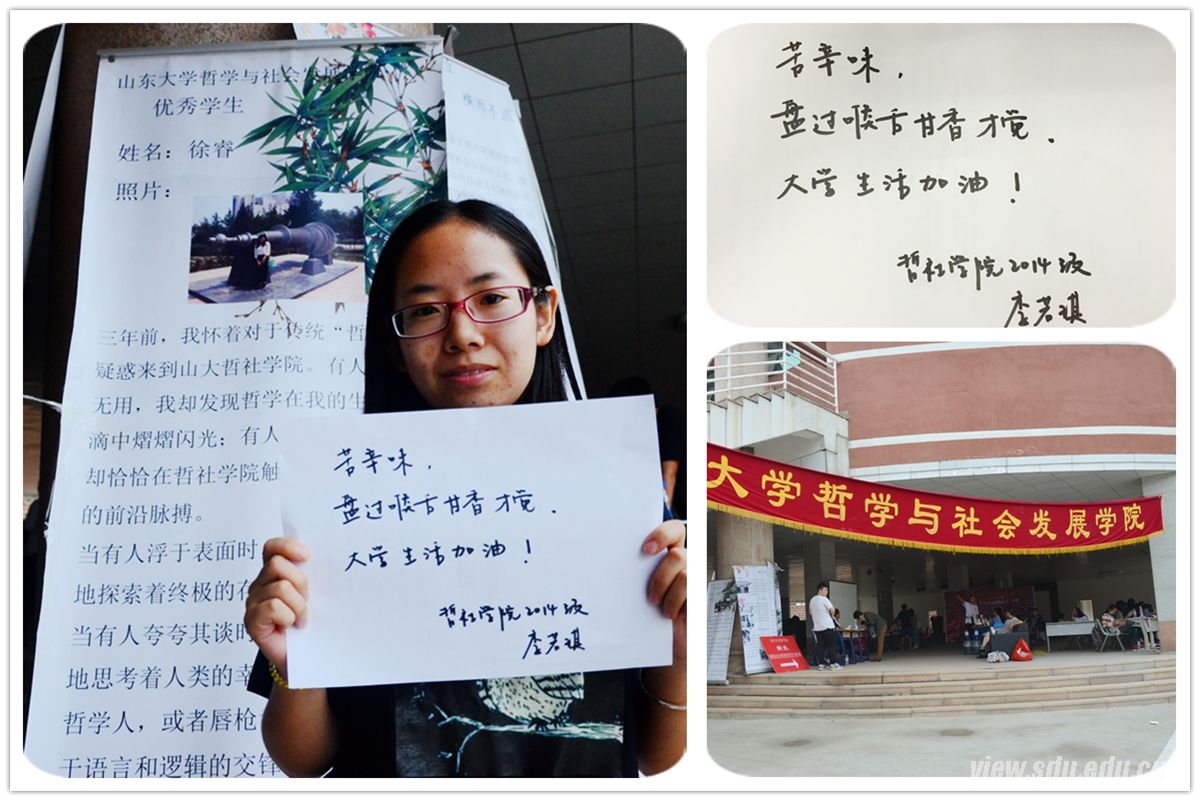 山东大学哲学与社会发展
优秀学生
姓名：徐睿
照片：
三年前，我怀着对于传统“哲
疑惑来到山大哲社学院。有人
无用，我却发现哲学在我的生
滴中熠熠闪光；有人
却恰恰在哲社学院触
的前沿脉搏。
当有人浮于表面时
地探索着终极的存
当有人夸夸其谈时
地思考着人类的幸
哲学人，或者唇枪
于语言和逻辑的交锋
苦辛味，
盘过喉舌甘香才觉．
大学生活加油！
哲社学院2014级
李若琪
苦辛味，
盘过喉舌甘香才觉．
大学生活加油！
哲社学院2014级
李若琪
大学哲学与社会发展学院
view.sdu.edu.cn